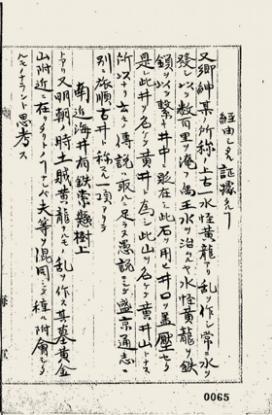 経由シタル証蹟ナシ
又郷紳某ノ所称ニ上古水怪黄龍アリ乱ヲ作シ常ニ水ヲ
発シ以テ数百里ヲ淹ス禹王水ヲ治ムルヤ水怪黄龍ヲ鉄
鎖ヲ以テ繋キ井中ニ駐在シ此石ヲ用ヒ井口ヲ蓋圧セリ
是レ此井ヲ名ケテ黄井ト為シ此山ヲ名ケテ黄井山トナス
所以ナリト云フ伝説ハ取ルニ足ラス愚説ニシテ盛京通志ニ
別ニ旅順古井ト称スル一項アリ
南近海井有鉄索懸樹上
トアリ又明朝ノ時土賊黄龍ナルモノ乱ヲ作ス其墓黄金
山附近ニ在リ
夫等ヲ混同シテ種々附会シ
タルモノナラント思考ス
0065